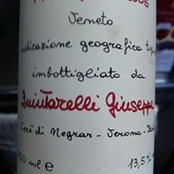 Veneto
indicazione geografica
imbottigliato da
Quintarelli Giuseppe
Cerè di Negrar - Verona
ml e 13,5%